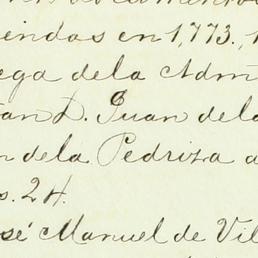 iendas en 1,773.,
ega dela Adm
an D. Juan dela
n dela Pedriza a
s. 24.
sé Manuel de Vil